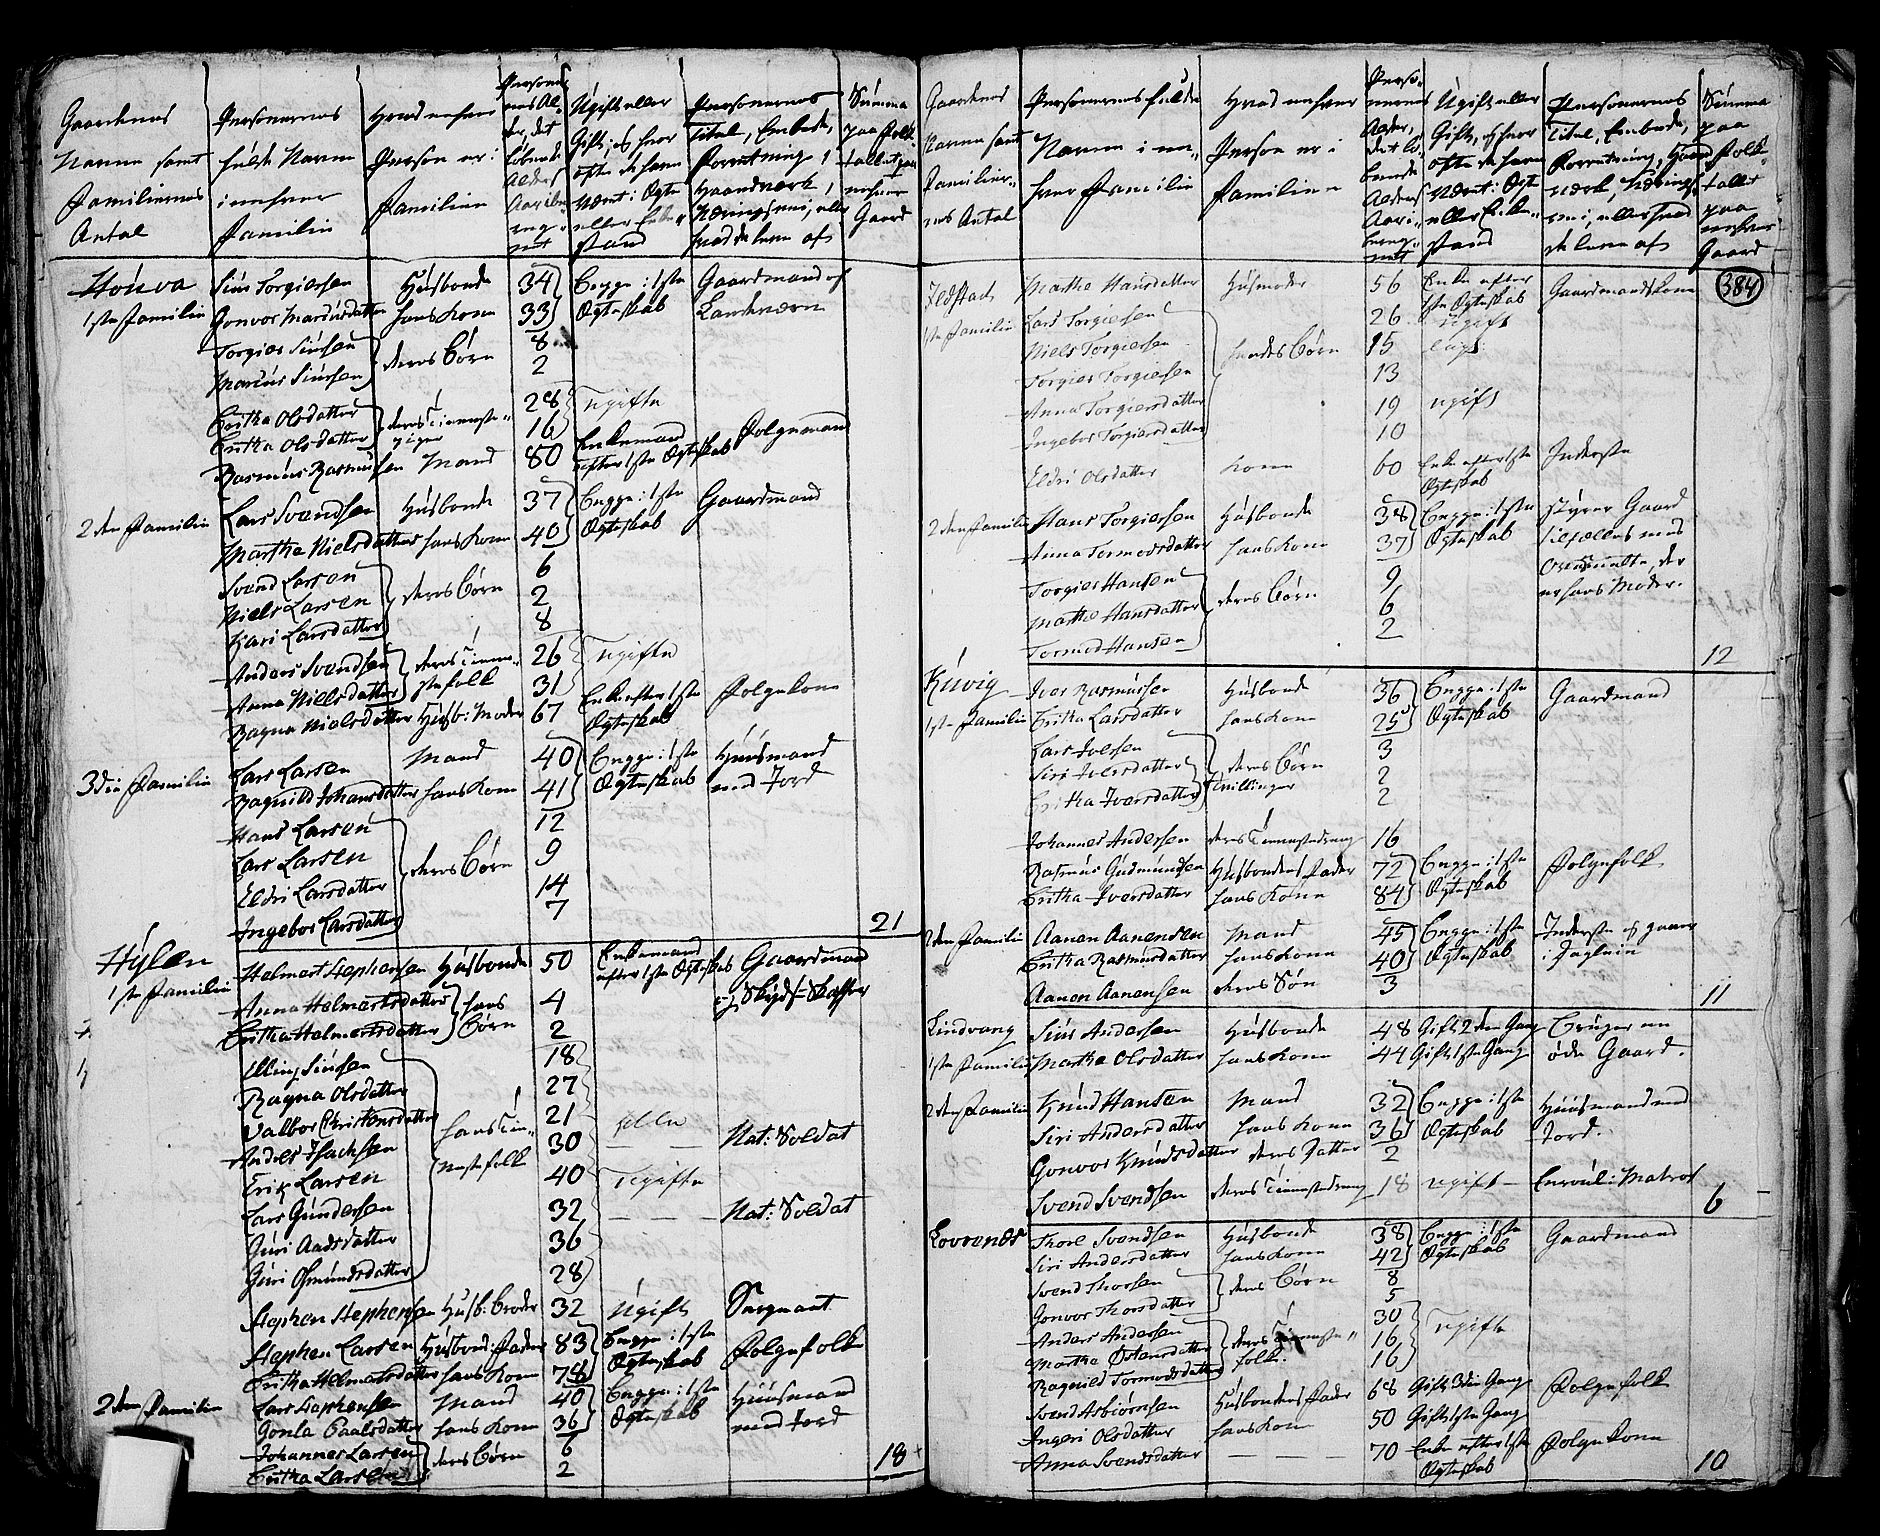 Gaardenes Navne samt Familiernes Antal | Personernes fulde Navne i enhver Familie | Hvad enhver Person er i Familien | Ugift eller Gift, og hvor ofte de have været i Ægte eller Enke stand | Personernes Titel, Embede, Forretning, Haandværk, Næringsvei, eller hvad de leve af | Summa paa Folke tallet paa enhver Gaard
Hónva
1ste Familie
Siur Torgiersen Husbonde 34 Begge i 1ste Gaardmand og
Gonvor Mardusdatter hans Kone 33 Ægteskab
Torgier Siursen deres Børn 8
Siursen 2
Britha Olsdatter deres Tieneste 28 Ugifte
Britha Olsdatter piger 16
Rasmus Rasmusen Mand 80 Enkemand efter 1ste Ægteskab Folgemand
2den Familie
Lars Svendsen Husbonde 37 Begge i 1ste Gaardmand
Martha Nielsdatter hans Kone 40 Ægteskab
Svend Larsen deres Børn 6
Niels Larsen 2
Kari Larsdatter 8
Anders Svendsen deres Tiene- 26 Ugifte
Anna Nielsdatter stefolk 31
Ragna Nielsdatter Husb: Moder 67 Enke efter 1ste Ægteskab Folgekone
3die Familie
Lars Larsen Mand 40 Begge i 1ste Huusmand
Ragnild Johansdatter hans Kone 41 Ægteskab med Jord
Hans Larsen 12
Lars Larsen deres Børn 9
Eldri Larsdatter 14
Ingebor Larsdatter 7
21
Hÿlen
1ste Familie
Helmert Stephensen Husbonde 50 Enkemand efter 1ste Ægteskab Gaardmand og Skyds-Skaffer
Anna Helmertsdatter hans 4
Britha Helmertsdatter Børn 2
Elling Siursen 18
Ragna Olsdatter 27
Valbor Christensdatter hans Tie- 21 alle
Anders Isachsen nestefolk 30 Nat: Soldat
Erik Larsen 40 Ugifte
Lars Gundersen 32 Nat: Soldat
Guri Aadsdatter 36
Guri Osmundsdatter 28
Stephen Stephensen Husb: Broder 32 Ugift Sergeant
Stephen Larsen Husbond: Fader 83 Begge i 1ste Folgefolk
Britha Helmertsdatter hans Kone 78 Ægteskab
2den Familie
Lars Stephensen Mand 40 Begge i 1ste Huusmand
Gonla Paalsdatter hans Kone 36 Ægteskab med Jord
Johannes Larsen deres Børn 6
Britha Larsen 2
18
Gaardenes Navne samt Familiernes Antal | Personernes fulde Navne i enhver Familie | Hvad enhver Person er i Familien | Ugift eller Gift, og hvor ofte de have været i Ægte eller Enke stand | Personernes Titel, Embede, Forretning, Haandværk, Næringsvei, eller hvad de leve af | Summa paa Folketallet paa enhver Gaard
384
1ste Familie
Martha Hansdatter Husmoder 56 Enke efter 1ste Ægteskab Gaardmandskone
Lars Torgiersen 26 Ugift
Niels Torgiersen hendes Børn 15
Torgier Torgiersen 13
Anna Torgiersdatter 19 Ugift
Ingebor Torgiersdatter 10
Eldri Olsdatter Kone 60 Enke efter 1ste Ægteskab Inderste
2den Familie
Hans Torgiersen Husbonde 38 Begge i 1ste styrer Gaard
Anna Tormodsdatter hans Kone 37 Ægteskab
Torgier Hansen 9 er hans Moder.
Martha Hansdatter deres Børn 6
Tormod Hansen 2
12
Kúvig
1ste Familie
Iver Rasmussen Husbonde 36 Begge i 1ste Gaardmand
Britha Larsdatter hans Kone 25 Ægteskab
Lars Iversen 3
Siri Iversdatter deres Børn 2
Britha Iversdatter Tvillinger 2
Johannes Andersen deres Tienestedreng 16
Rasmus Gudmundsen Husbondens Fader 72 Begge i 1ste Folgefolk
Britha Iversdatter hans Kone 84 Ægteskab
2den Familie
Aanen Aanensen Mand 45 Begge i 1ste Inderste og gaaer
Britha Rasmusdatter hans Kone 40 Ægteskab i Dagleie
Aanen Aanensen deres Søn 3
11
Lindvang
1ste Familie
Siur Andersen Husbonde 48 Gift 2den Gang Bruger en
Martha Olsdatter hans Kone 44 Gift 1ste Gang øde Gaard.
2den Familie
Knud Hansen Mand 32 Begge i 1ste Huusmand med
Siri Andersdatter hans Kone 36 Ægteskab Jord.
Gonvor Knudsdatter deres Datter 2
Svend Svendsen deres Tienestedreng 18 Ugift Enroul: Matros
6
Lovrenæs
Thore Svendsen Husbonde 38 Begge i 1ste Gaardmand
Siri Andersdatter hans Kone 42 Ægteskab
Svend Thorsen deres Børn 8
Gonvor Thorsdatter 5
Anders Andersen 30
Martha Østensdatter deres Tieneste- 16 Ugifte
Ragnild Tormodsdatter folk. 16
Svend Asbiørnsen Husbondens Fader 68 Gift 3die Gang Folgefolk
Ingeri Olsdatter hans Kone 50 Gift 1ste Gang
Anna Svendsdatter 70 Enke efter 1ste Ægteskab Folgekone
10